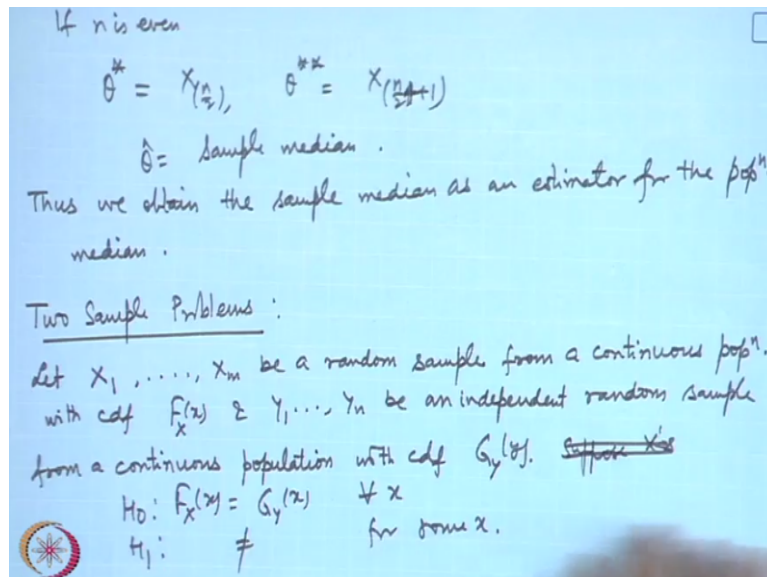 If n is even
θ* = X(n/2), θ** = X(n/2+1)
θ̂ = Sample median.
Thus we obtain the sample median as an estimator for the popⁿ.
median.
Two Sample Problems :
Let X₁, ....., Xₘ be a random sample from a continuous popⁿ.
with cdf F_X(x) & Y₁, ..., Yₙ be an independent random sample
from a continuous population with cdf G_Y(y).
H₀: F_X(x) = G_Y(x) ∀ x
H₁: ≠ for some x.